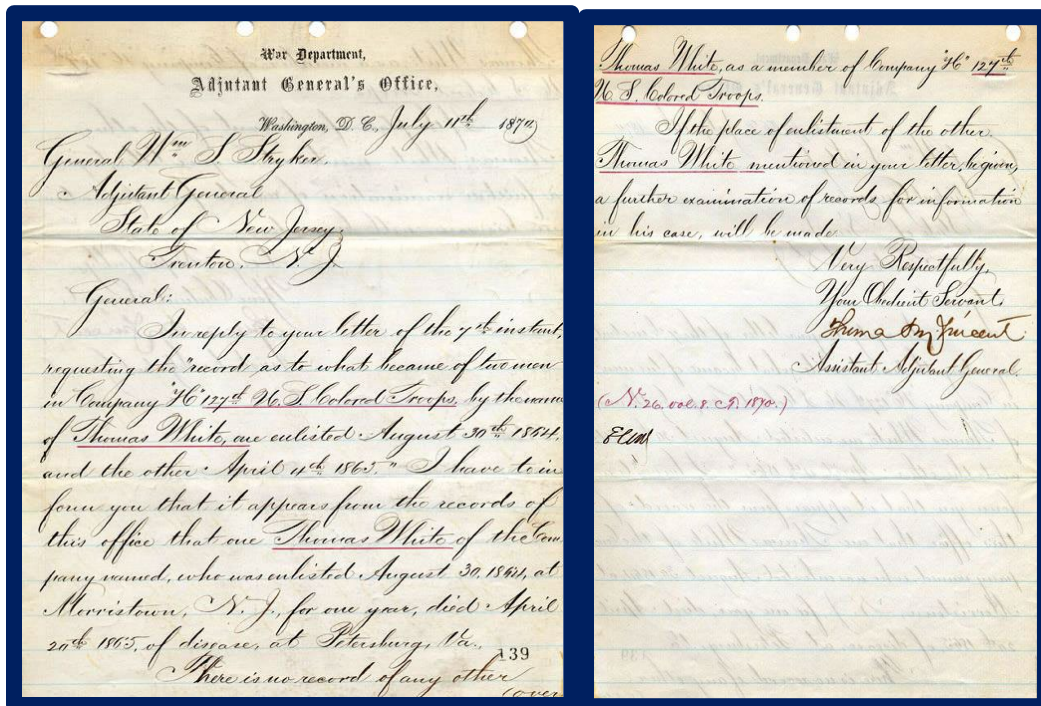 War Department,
Adjutant General's Office,
Washington, D. C., July 11th 1870
General Wm S Stryker.
Adjutant General
State of New Jersey.
Trenton, N. J.
General:
In reply to your letter of the 7th instant,
requesting the "record as to what became of two men
in Company "H" 127th U. S. Colored Troops, by the name
of Thomas White, one enlisted August 30th 1864,
and the other April 4th 1865." I have to in
form you that it appears from the records of
this office that one Thomas White of the Com
pany named, who was enlisted August 30, 1864, at
Morristown, N. J., for one year, died April
20th 1865, of disease, at Petersburg, Va.,
139
There is no record of any other
(over
Thomas White, as a member of Company "H" 127th
U. S. Colored Troops.
If the place of enlistment of the other
Thomas White mentioned in your letter, be given,
a further examination of records for information
in his case, will be made.
Very Respectfully,
Your Obedient Servant,
Thomas M Vincent
Assistant Adjutant General.
(N. 26, vol. 8. 1870.)